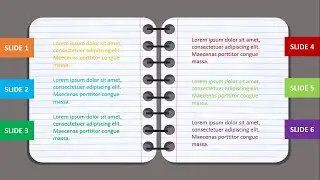 SLIDE 1
Lorem ipsum dolor sit amet,
consectetuer adipiscing elit.
Maecenas porttitor congue
massa.
SLIDE 2
Lorem ipsum dolor sit amet,
consectetuer adipiscing elit.
Maecenas porttitor congue
massa.
SLIDE 3
Lorem ipsum dolor sit amet,
consectetuer adipiscing elit.
Maecenas porttitor congue
massa.
SLIDE 4
Lorem ipsum dolor sit amet,
consectetuer adipiscing elit.
Maecenas porttitor congue
massa.
SLIDE 5
Lorem ipsum dolor sit amet,
consectetuer adipiscing elit.
Maecenas porttitor congue
massa.
SLIDE 6
Lorem ipsum dolor sit amet,
consectetuer adipiscing elit.
Maecenas porttitor congue
massa.